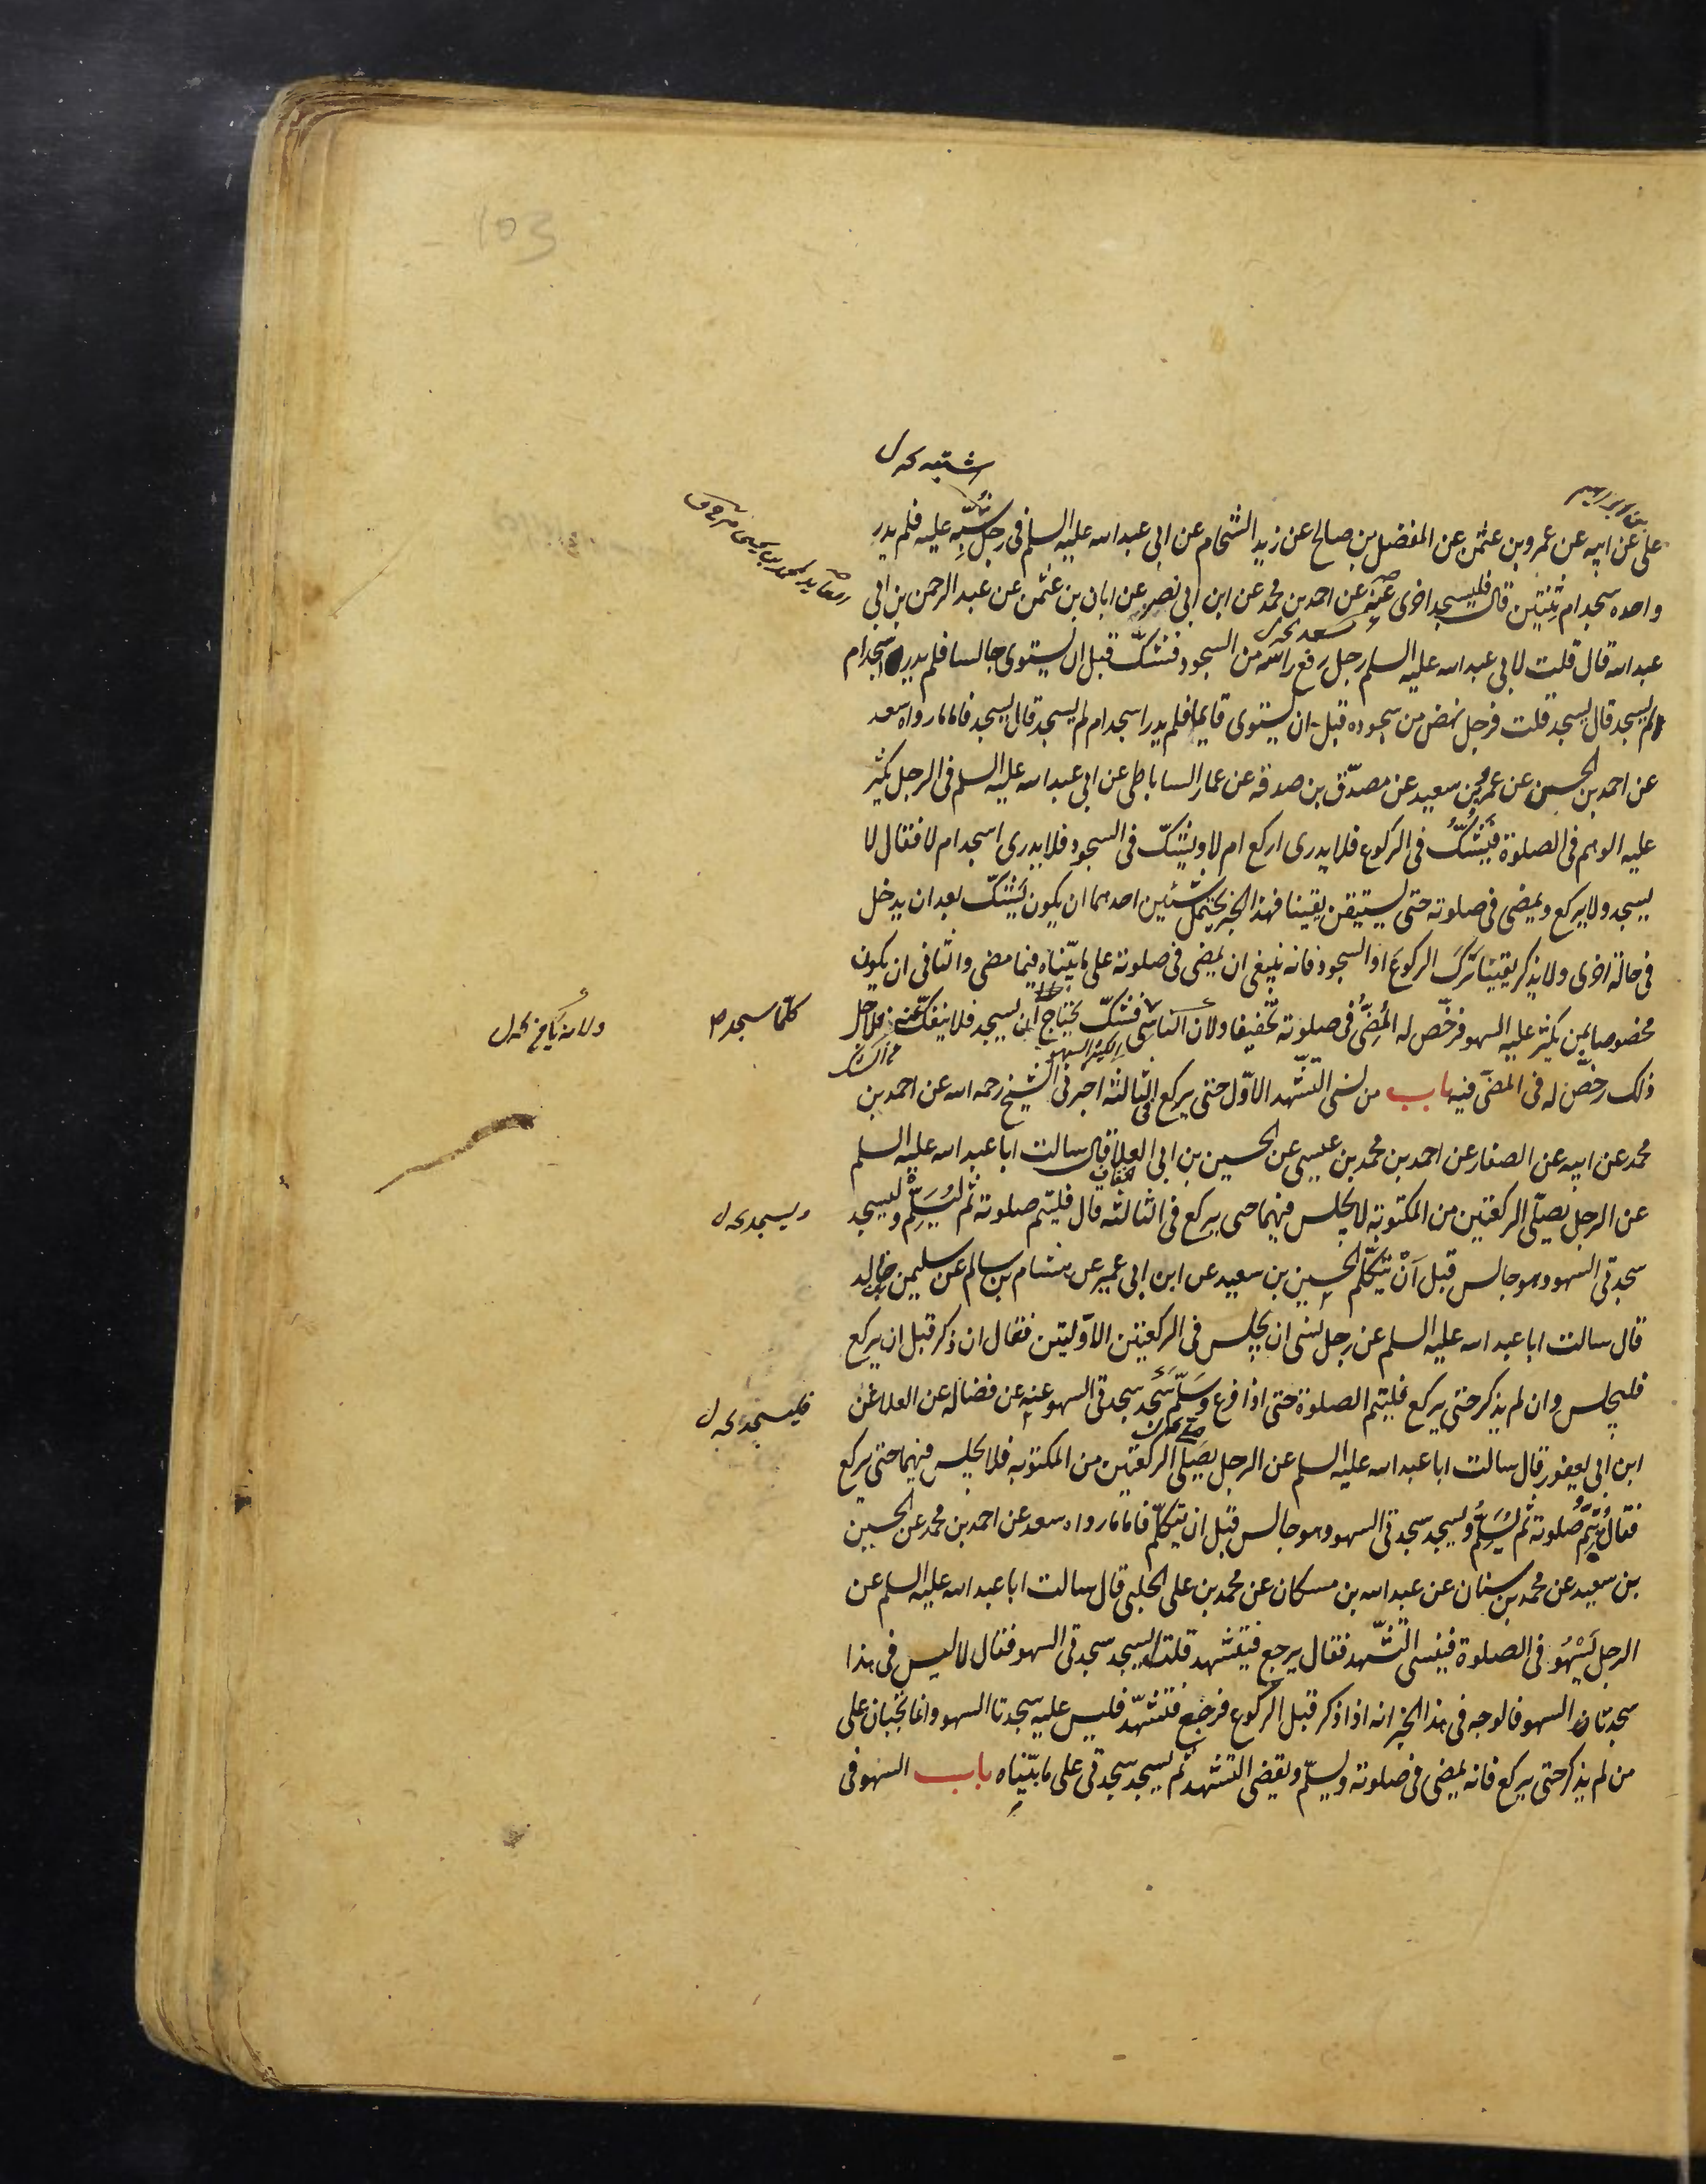 103
على عن ابيه عن عمرو بن عثمن عن المفضل بن صالح عن زيد الشحام عن ابى عبد الله عليه السلم فى رجل شُبِّه عليه فلم يدر
واحده سجد ام ثنتين قال فليسجد اخرى عنه عن احمد بن محمد عن ابن ابى نصر عن ابان بن عثمن عن عبد الرحمن بن ابى
عبد الله قال قلت لابى عبد الله عليه السلم رجل رفع راسه من السجود فشكّ قبل ان يستوى جالسا فلم يدر اسجد ام
لم يسجد قال يسجد قلت فرجل نهض من سجوده قبل ان يستوى قايما فلم يدر اسجد ام لم يسجد قال يسجد فاما ما رواه سعد
عن احمد بن الحسين عن عمرو بن سعيد عن مصدّق بن صدقه عن عمار الساباطى عن ابى عبد الله عليه السلم فى الرجل يكثر
عليه الوهم فى الصلوة فيَشُكُّ فى الركوع فلا يدرى اركع ام لا ويشكّ فى السجود فلا يدرى اسجد ام لا فقال لا
يسجد ولا يركع ويمضى فى صلوته حتى يستيقن يقينا فهذا الخبر يحتمل شيئين احدهما ان يكون يَشكّ بعد ان يدخل
فى حالة اخرى ولا يذكر يقينا تَركَ الركوعَ او السجود فانه ينبغى ان يمضى فى صلوته على ما بيّناه فيما مضى والثانى ان يكون
مخصوصا بمن يكثر عليه السهو فرخّص له المُضِىُّ فى صلوته تخفيفا ولان الناسى فشكّ يحتاج ان يسجد فلا ينفكّ عنه فلاجل
ذلك رخّص له فى المضى فيه باب من نسى التشهد الاوّل حتى يركع فى الثالثه اخبرنى الشيخ رحمه الله عن احمد بن
محمد عن ابيه عن الصفار عن احمد بن محمد بن عيسى عن الحسين بن ابى العلا قال سالت ابا عبد الله عليه السلم
عن الرجل يصلّى الركعتين من المكتوبة لا يجلس فيهما حتى يركع فى الثالثه قال فليتم صلوته ثم ليُسَلِّمْ وليسجد
سجدتى السهو وهو جالس قبل اَنْ يتكلّم الحسين بن سعيد عن ابن ابى عمير عن هشام بن سالم عن سليمن بن خالد
قال سالت ابا عبد الله عليه السلم عن رجل نسى ان يجلس فى الركعتين الاوّليتين فقال ان ذكر قبل ان يركع
فليجلس وان لم يذكر حتى يركع فليتم الصلوة حتى اذا فرغ وسَلّم سَجَد سجدتى السهو عنه عن فضاله عن العلا عن
ابن ابى يعفور قال سالت ابا عبد الله عليه السلم عن الرجل يصَلى الركعتين من المكتوبه فلا يجلس فيهما حتى يركع
فقال يُتِمُّ صلوته ثم يُسَلِّمُ ويسجد سجدتى السهو وهو جالس قبل ان يتكلّم فاما ما رواه سعد عن احمد بن محمد عن الحسين
بن سعيد عن محمد بن سنان عن عبد الله بن مسكان عن محمد بن على الحلبى قال سالت ابا عبد الله عليه السلم عن
الرجل يَسْهُو فى الصلوة فينسى التشّهد فقال يرجع فيتشهد قلت ايسجد سجدتى السهو فقال لا ليس فى هذا
سجدتا السهو فالوجه فى هذا الخبر انه اذا ذكر قبل الركوع فرجع فتشهّد فليس عليه سجدتا السهو وانما تجبان على
من لم يذكر حتى يركع فانه يمضى فى صلوته ويسلّم ويقضى التشهد ثم يسجد سجدتى على ما بيّناه باب السهو فى